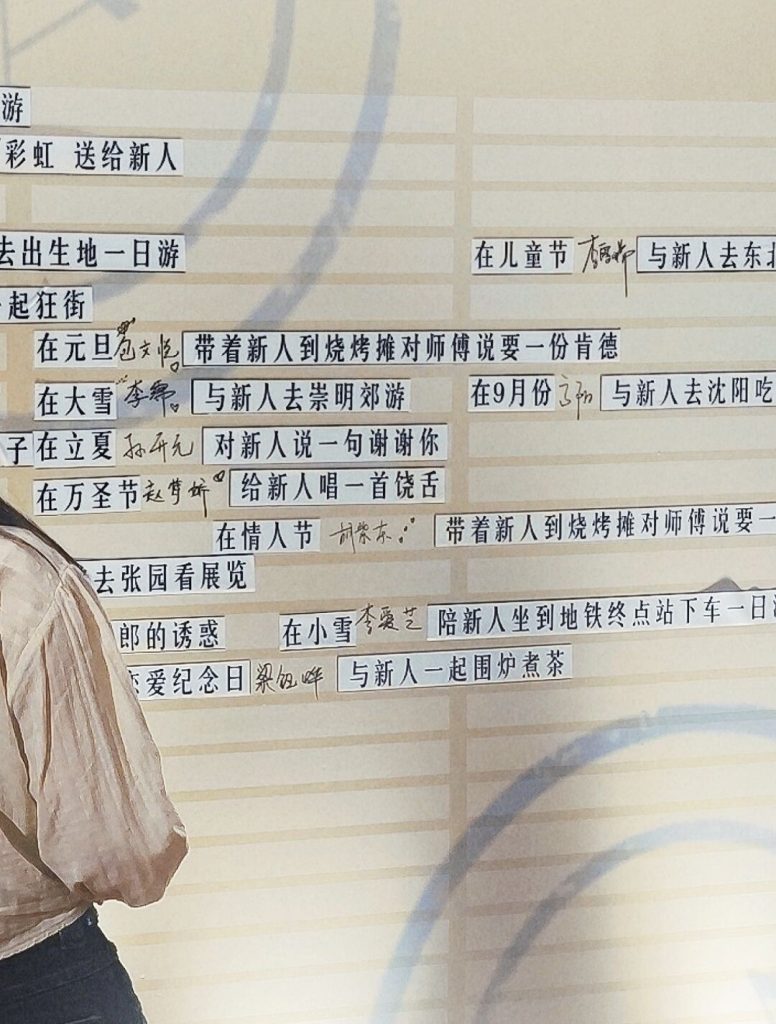 游
彩虹 送给新人
去出生地一日游
在儿童节 与新人去东北
一起狂街
在元旦 包文悦 带着新人到烧烤摊对师傅说要一份肯德
在大雪 李 与新人去崇明郊游
在9月份 与新人去沈阳吃
子 在立夏 孙开元 对新人说一句谢谢你
在万圣节 赵梦娇 给新人唱一首饶舌
在情人节 带着新人到烧烤摊对师傅说要一
去张园看展览
郎的诱惑 在小雪 李爱芝 陪新人坐到地铁终点站下车一日游
恋爱纪念日 梁钰 与新人一起围炉煮茶